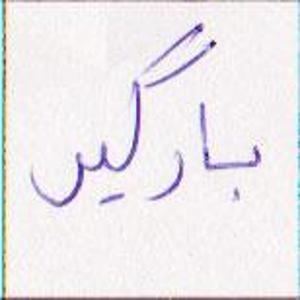 بارگیں